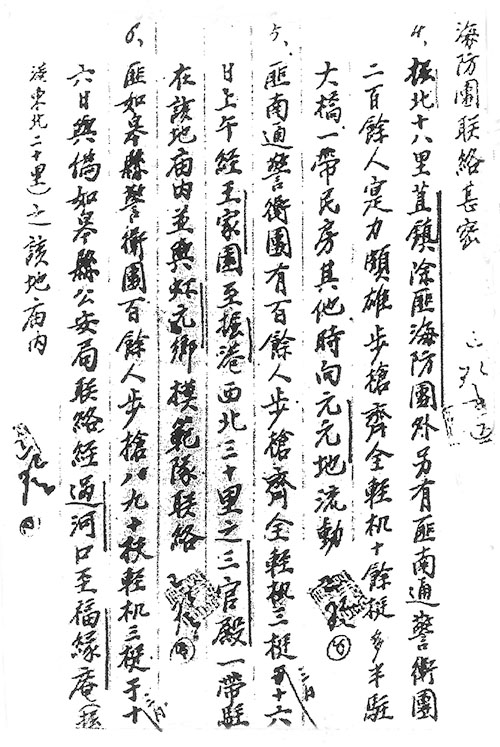 海防團联絡甚密
4、振北十八里苴鎮除匪海防團外另有匪南通警衛團
二百餘人实力頗雄步槍齊全輕机十餘梃多半駐
大橋一帶民房其他時向元元地流動
5、匪南通警衛團有百餘人步槍齊全輕机三梃 二月十六
日上午經王家園至振港西北三十里之三官殿一帶駐
在該地庙内並與虹元鄉模範隊联絡
6、匪如皋縣警衛團百餘人步搶八九十枚輕机三梃于 二月十
六日與僞如皋縣公安局联絡經過河口至福緣庵(振
港東北二十里)之該地庙内